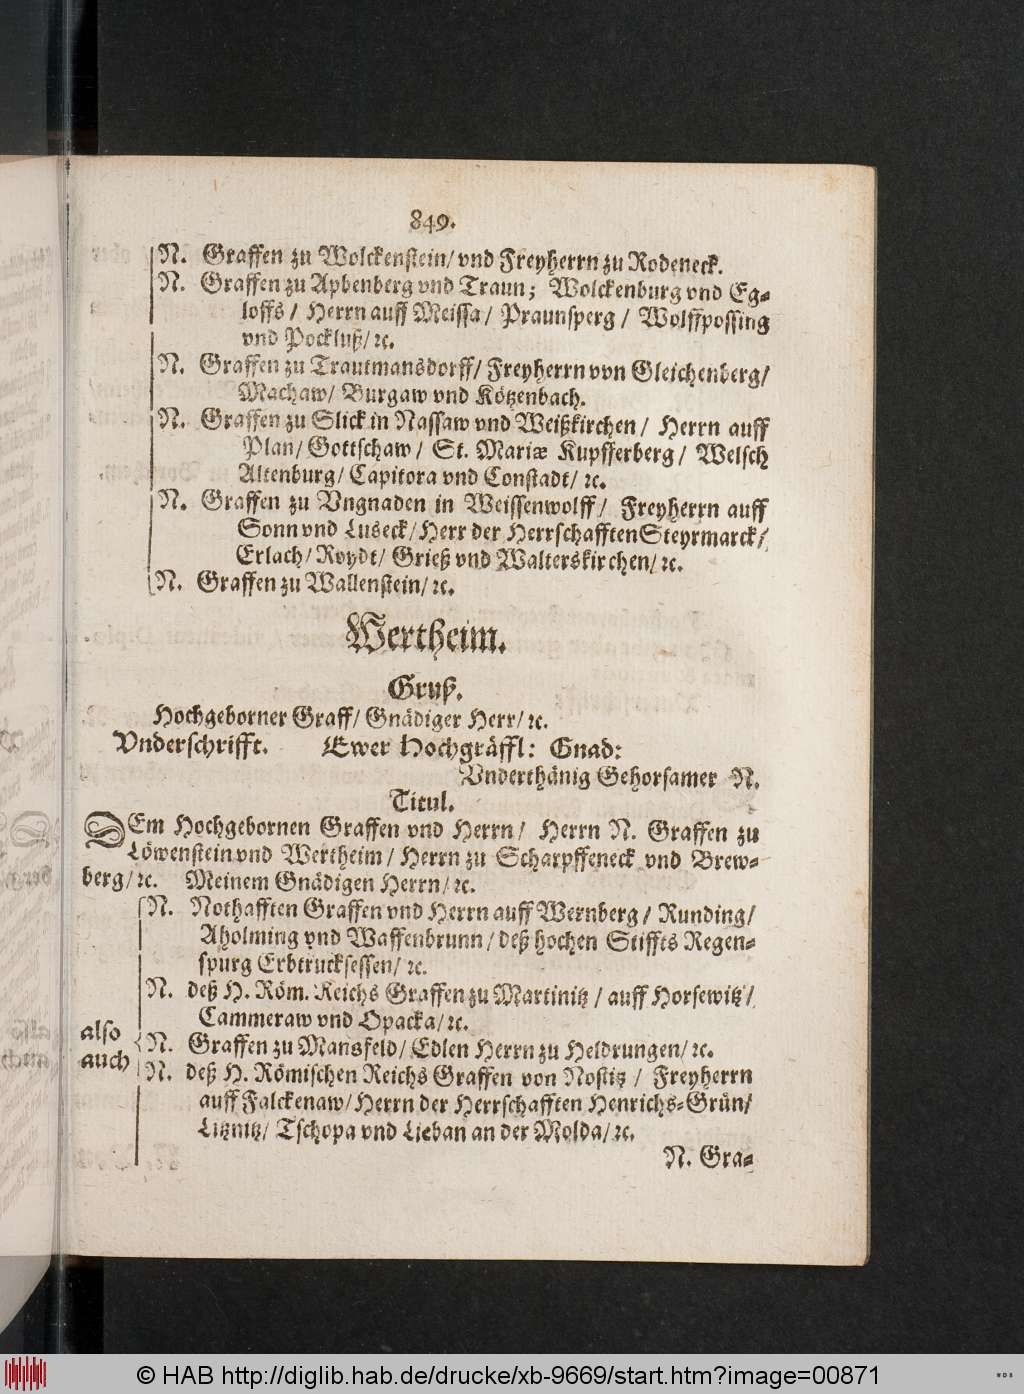 849.
N. Graffen zu Wolckenstein/ vnd Freyherrn zu Rodeneck.
N. Graffen zu Apbenberg vnd Traun; Wolckenburg vnd Eg-
loffs / Herrn auff Meissa / Praunsperg / Wolffpossing
vnd Pockluß/ ꝛc.
N. Graffen zu Trautmansdorff/ Freyherrn von Gleichenberg/
Machaw/ Burgaw vnd Kötzenbach.
N. Graffen zu Slick in Nassaw vnd Weißkirchen / Herrn auff
Plan/ Gottschaw / St. Mariæ Kupfferberg / Welsch
Altenburg/ Capitora vnd Constadt/ ꝛc.
N. Graffen zu Vngnaden in Weissenwolff / Freyherrn auff
Sonn vnd Luseck/ Herr der Herrschafften Steyrmarck/
Erlach/ Roydt/ Grieß vnd Walterskirchen/ ꝛc.
N. Graffen zu Wallenstein/ ꝛc.
Wertheim.
Gruß.
Hochgeborner Graff/ Gnädiger Herr/ ꝛc.
Vnderschrifft. Ewer Hochgräffl: Gnad:
Vnderthänig Gehorsamer N.
Titul.
DEm Hochgebornen Graffen vnd Herrn / Herrn N. Graffen zu
Löwenstein vnd Wertheim / Herrn zu Scharpffeneck vnd Brew-
berg/ ꝛc. Meinem Gnädigen Herrn/ ꝛc.
N. Nothafften Graffen vnd Herrn auff Wernberg / Runding/
Aholming vnd Waffenbrunn / deß hochen Stiffts Regen-
spurg Erbtrucksessen/ ꝛc.
N. deß H. Röm. Reichs Graffen zu Martinitz / auff Horsewitz/
Cammeraw vnd Opacka/ ꝛc.
also auch
N. Graffen zu Mansfeld/ Edlen Herrn zu Heldrungen/ ꝛc.
N. deß H. Römischen Reichs Graffen von Nostitz / Freyherrn
auff Falckenaw/ Herrn der Herrschafften Henrichs-Grün/
Litznitz/ Tschopa vnd Lieban an der Molda/ ꝛc.
N. Gra-
© HAB http://diglib.hab.de/drucke/xb-9669/start.htm?image=00871